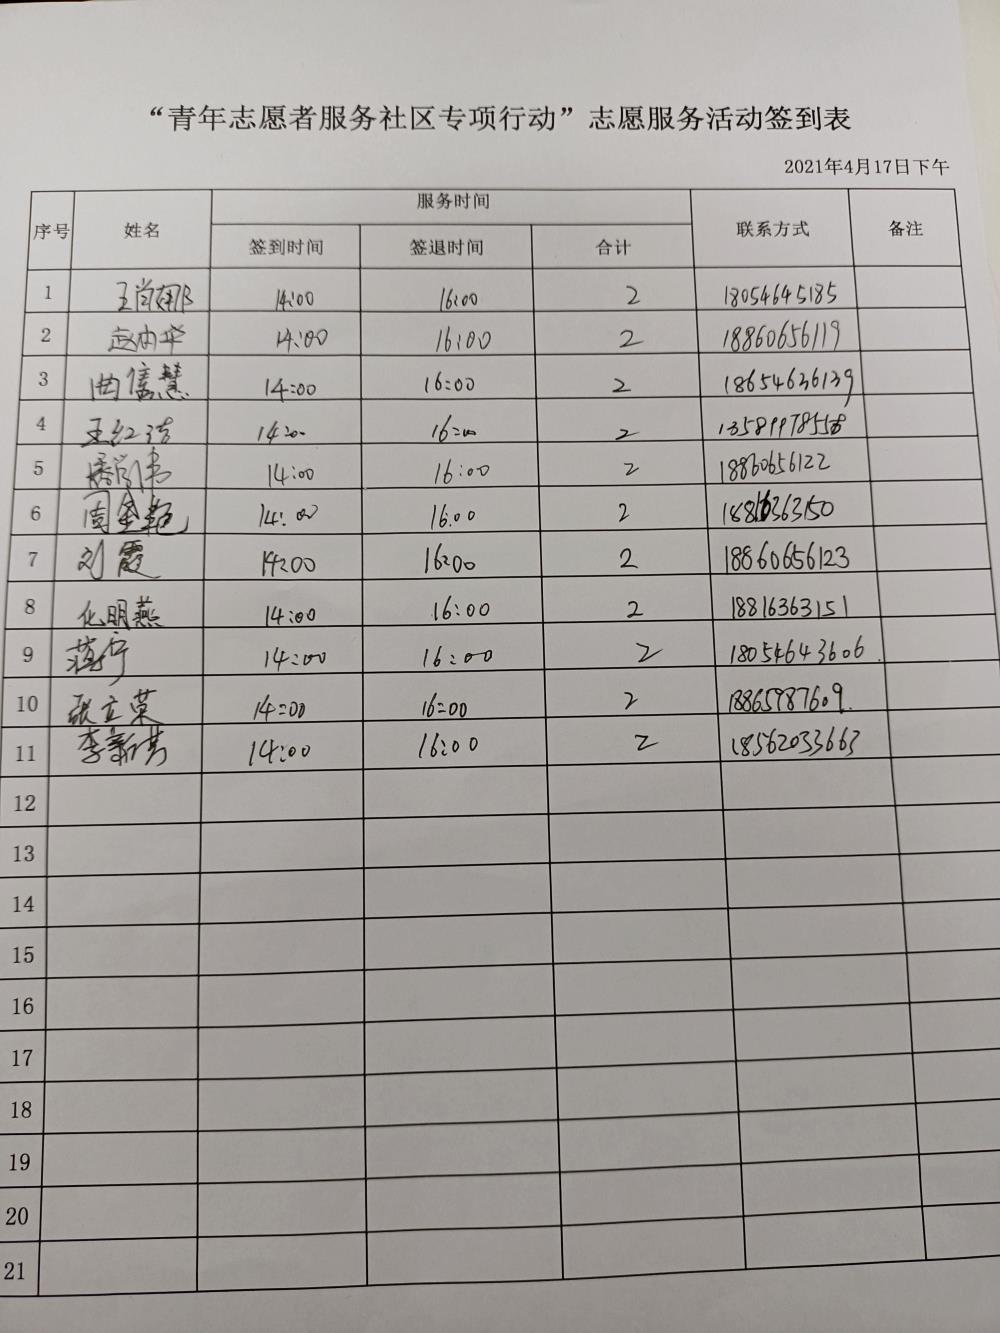 “青年志愿者服务社区专项行动”志愿服务活动签到表
2021年4月17日下午
序号 姓名 服务时间 联系方式 备注
签到时间 签退时间 合计
1 王肖娜 14:00 16:00 2 18054645185
2 14:00 16:00 2 18860656119
3 曲信慧 14:00 16:00 2 18654636139
4 王红洁 14:00 16:00 2
5 14:00 16:00 2 18860656122
6 周金艳 14:00 16:00 2 18816363150
7 刘霞 14:00 16:00 2 18860656123
8 化明燕 14:00 16:00 2 18816363151
9 14:00 16:00 2 18054643606
10 张立英 14:00 16:00 2 18865987609
11 14:00 16:00 2 18562033663
12
13
14
15
16
17
18
19
20
21